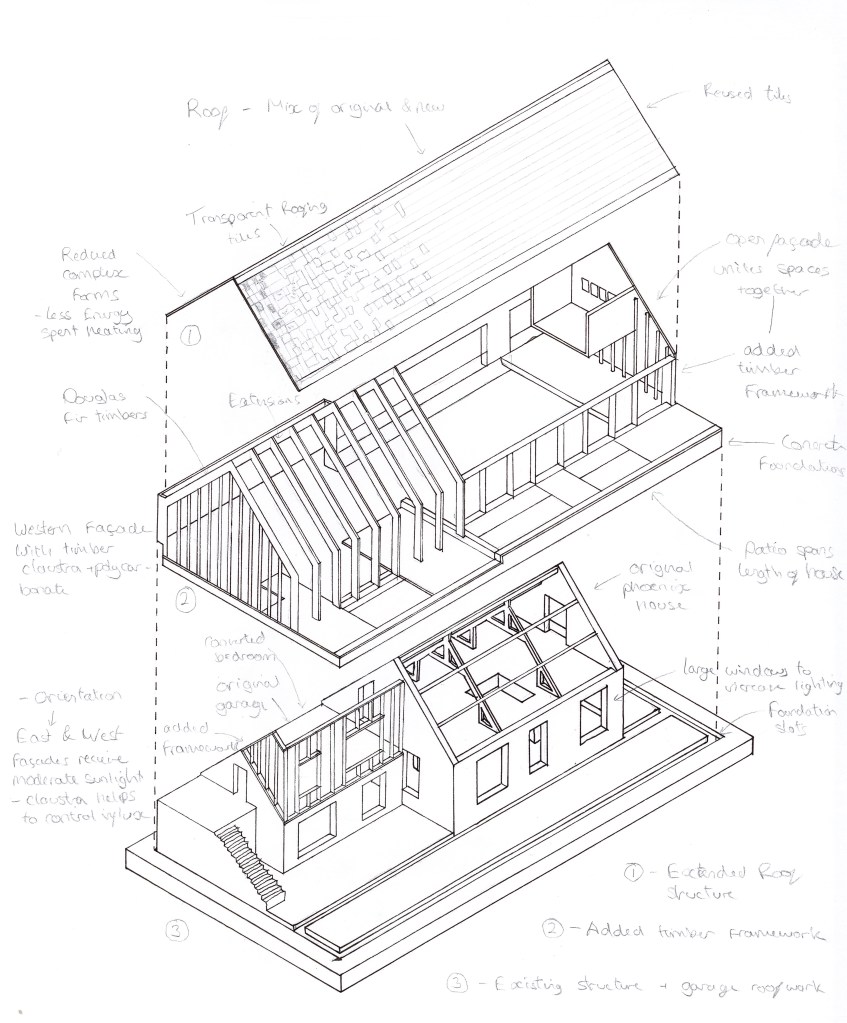 Roof - Mix of original & new
Reused tiles
Transparent Roofing
tiles
Reduced
complex
forms
- less Energy
spent heating
①
open façade
unites spaces
together
added
timber
Framework
Douglas
fir timbers
Extrusions
Concrete
Foundations
Western Façade
with timber
claustra + polycar-
bonate
Patio spans
length of house
②
original
phoenix
House
converted
bedroom
original
garage
added
framework
large windows to
increase lighting
Foundation
slots
- Orientation
East & West
façades receive
moderate sunlight
- claustra helps
to control
① - Extended Roof
structure
② - Added timber Framework
③
③ - Existing structure + garage roofwork